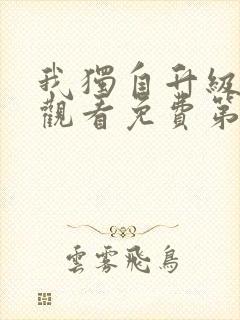 我獨自升級
觀看免費第
雲霧飛鳥